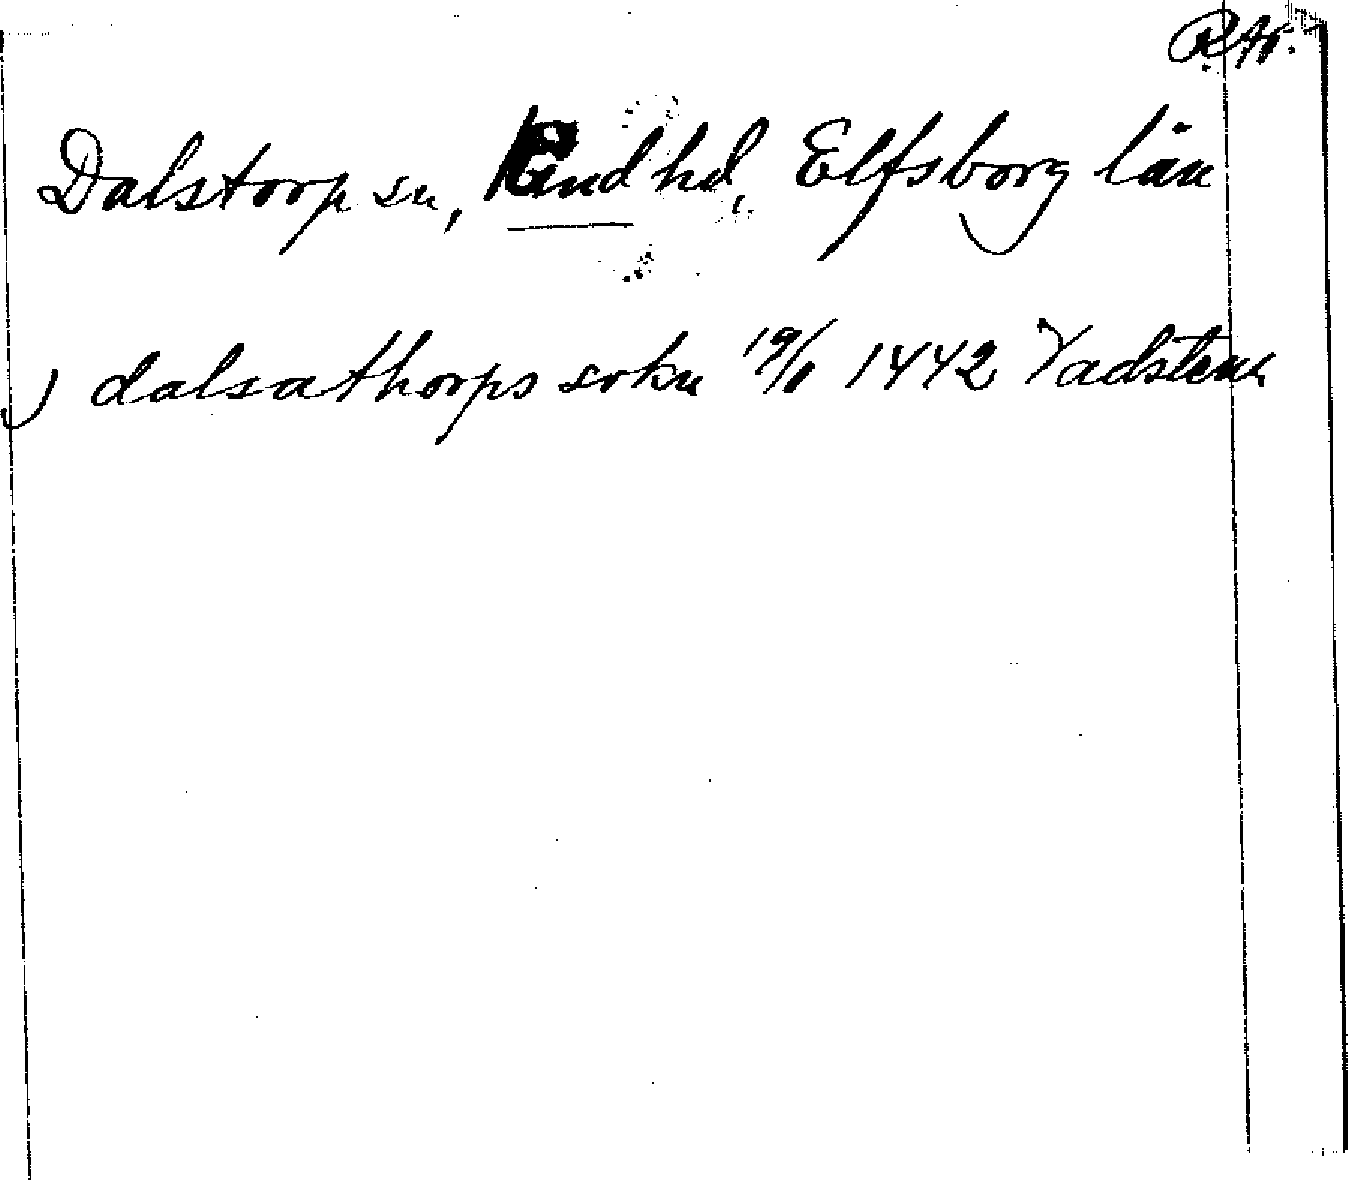 R.Ar.
Dalstorp sn, Kind hd, Elfsborg län
J dalsathorps sokn 19/1 1442 Vadstena